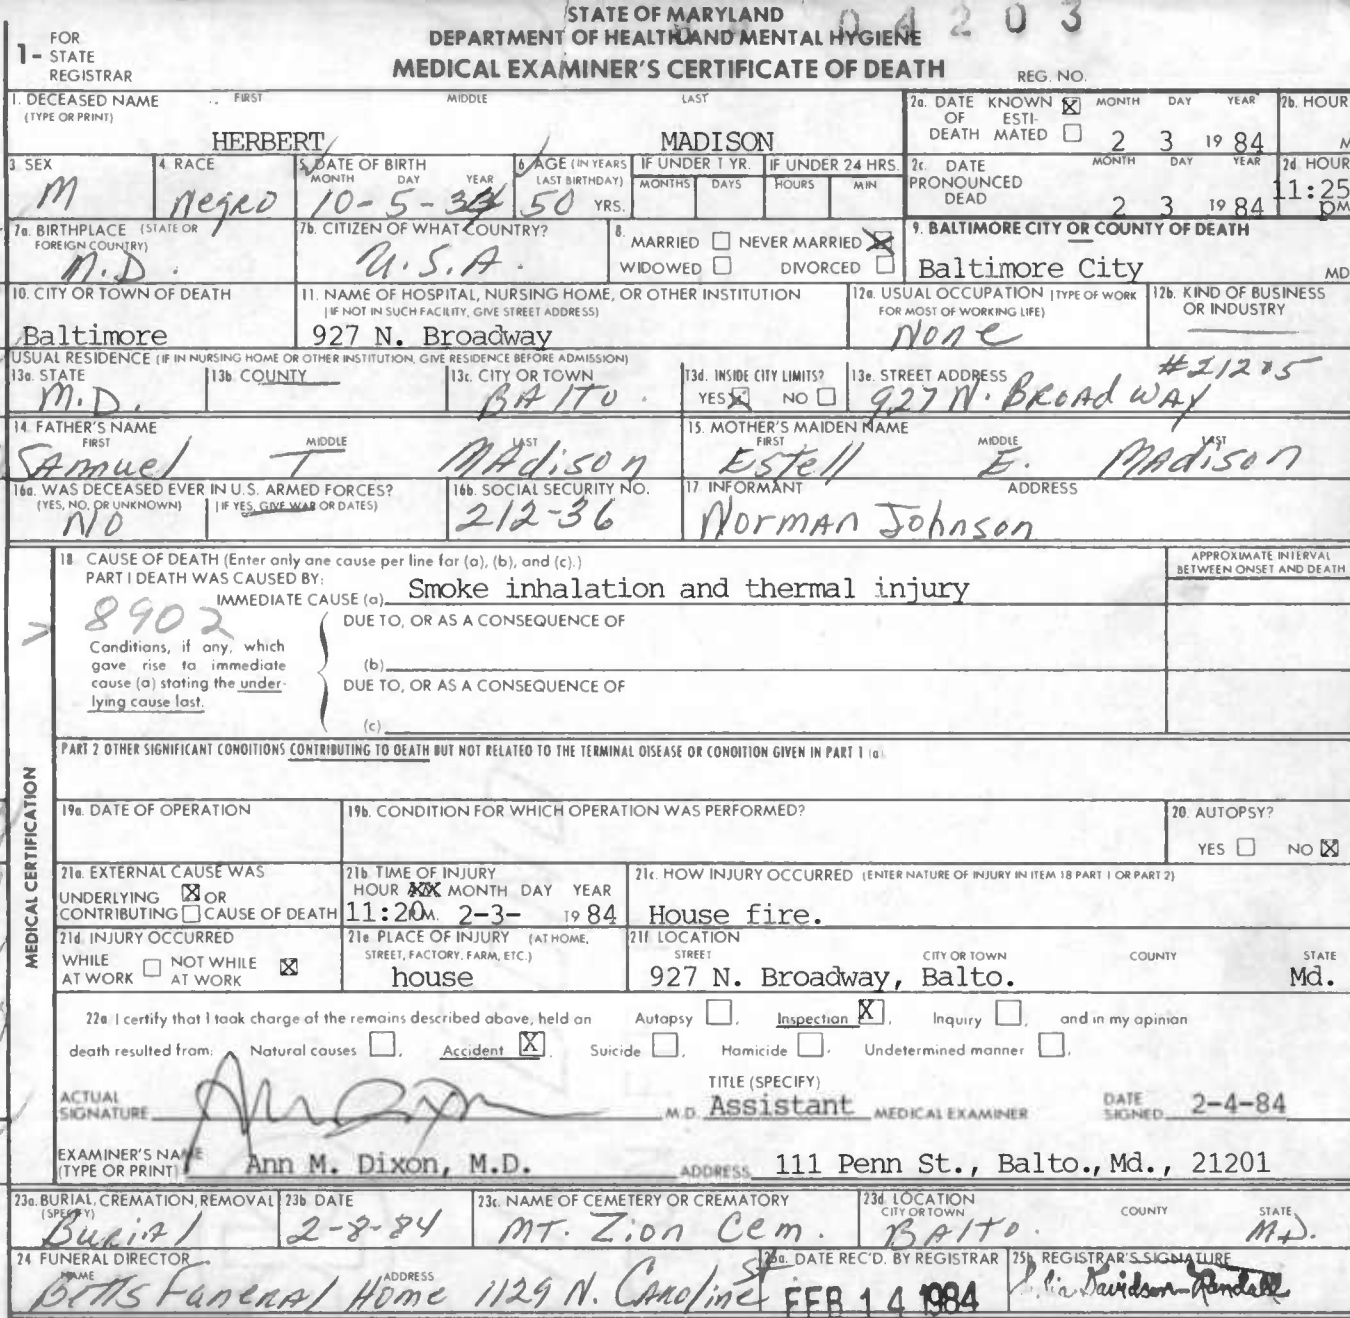 STATE OF MARYLAND
04203
DEPARTMENT OF HEALTH AND MENTAL HYGIENE
MEDICAL EXAMINER'S CERTIFICATE OF DEATH
1- FOR STATE REGISTRAR
REG. NO.
1. DECEASED NAME (TYPE OR PRINT) FIRST MIDDLE LAST
HERBERT MADISON
2a. DATE OF DEATH KNOWN ☒ ESTIMATED ☐ MONTH DAY YEAR
2 3 19 84
2b. HOUR
M
3 SEX
M
4. RACE
Negro
5. DATE OF BIRTH MONTH DAY YEAR
10-5-
6. AGE (IN YEARS LAST BIRTHDAY)
50 YRS.
IF UNDER 1 YR. MONTHS DAYS
IF UNDER 24 HRS. HOURS MIN
2c. DATE PRONOUNCED DEAD MONTH DAY YEAR
2 3 19 84
2d. HOUR
11:25 PM
7a. BIRTHPLACE (STATE OR FOREIGN COUNTRY)
M.D.
7b. CITIZEN OF WHAT COUNTRY?
U.S.A.
8. MARRIED ☐ NEVER MARRIED ☒
WIDOWED ☐ DIVORCED ☐
9. BALTIMORE CITY OR COUNTY OF DEATH
Baltimore City MD
10. CITY OR TOWN OF DEATH
Baltimore
11. NAME OF HOSPITAL, NURSING HOME, OR OTHER INSTITUTION
(IF NOT IN SUCH FACILITY, GIVE STREET ADDRESS)
927 N. Broadway
12a. USUAL OCCUPATION (TYPE OF WORK FOR MOST OF WORKING LIFE)
None
12b. KIND OF BUSINESS OR INDUSTRY
USUAL RESIDENCE (IF IN NURSING HOME OR OTHER INSTITUTION, GIVE RESIDENCE BEFORE ADMISSION)
13a. STATE
M.D.
13b. COUNTY
13c. CITY OR TOWN
BALTO.
13d. INSIDE CITY LIMITS?
YES ☒ NO ☐
13e. STREET ADDRESS #21205
927 N. BROADWAY
14. FATHER'S NAME FIRST MIDDLE LAST
Samuel T Madison
15. MOTHER'S MAIDEN NAME FIRST MIDDLE LAST
Estell E. Madison
16a. WAS DECEASED EVER IN U.S. ARMED FORCES?
(YES, NO, OR UNKNOWN) (IF YES, GIVE WAR OR DATES)
NO
16b. SOCIAL SECURITY NO.
212-36
17 INFORMANT ADDRESS
Norman Johnson
MEDICAL CERTIFICATION
18 CAUSE OF DEATH (Enter only one cause per line for (a), (b), and (c).)
APPROXIMATE INTERVAL BETWEEN ONSET AND DEATH
PART I DEATH WAS CAUSED BY:
IMMEDIATE CAUSE (a) Smoke inhalation and thermal injury
8902
DUE TO, OR AS A CONSEQUENCE OF
Conditions, if any, which gave rise to immediate cause (a) stating the underlying cause last.
(b)
DUE TO, OR AS A CONSEQUENCE OF
(c)
PART 2 OTHER SIGNIFICANT CONDITIONS CONTRIBUTING TO DEATH BUT NOT RELATED TO THE TERMINAL DISEASE OR CONDITION GIVEN IN PART 1 (a)
19a. DATE OF OPERATION
19b. CONDITION FOR WHICH OPERATION WAS PERFORMED?
20. AUTOPSY?
YES ☐ NO ☒
21a. EXTERNAL CAUSE WAS
UNDERLYING ☒ OR
CONTRIBUTING ☐ CAUSE OF DEATH
21b. TIME OF INJURY
HOUR XX MONTH DAY YEAR
11:20 M. 2-3- 19 84
21c. HOW INJURY OCCURRED (ENTER NATURE OF INJURY IN ITEM 18 PART 1 OR PART 2)
House fire.
21d INJURY OCCURRED
WHILE AT WORK ☐ NOT WHILE AT WORK ☒
21e PLACE OF INJURY (AT HOME, STREET, FACTORY, FARM, ETC.)
house
21f LOCATION
STREET CITY OR TOWN COUNTY STATE
927 N. Broadway, Balto. Md.
22a I certify that I took charge of the remains described above, held an Autopsy ☐, Inspection ☒, Inquiry ☐, and in my opinion
death resulted from: Natural causes ☐, Accident ☒, Suicide ☐, Homicide ☐, Undetermined manner ☐.
ACTUAL SIGNATURE Ann Dixon M.D.
TITLE (SPECIFY)
Assistant MEDICAL EXAMINER
DATE SIGNED 2-4-84
EXAMINER'S NAME (TYPE OR PRINT) Ann M. Dixon, M.D.
ADDRESS 111 Penn St., Balto., Md., 21201
23a. BURIAL, CREMATION, REMOVAL (SPECIFY)
Burial
23b. DATE
2-8-84
23c. NAME OF CEMETERY OR CREMATORY
MT. Zion Cem.
23d. LOCATION CITY OR TOWN COUNTY STATE
BALTO. MD.
24 FUNERAL DIRECTOR
NAME ADDRESS
Betts Funeral Home 1129 N. Caroline St
25a. DATE REC'D. BY REGISTRAR
FEB 14 1984
25b. REGISTRAR'S SIGNATURE
Davidson-Randall